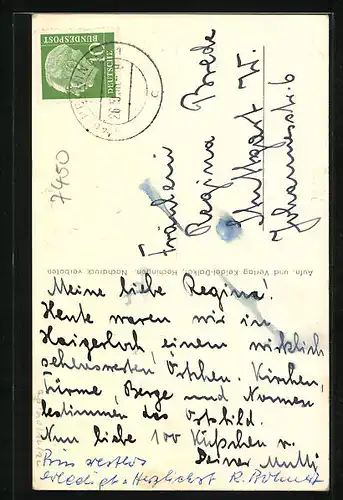 10
DEUTSCHE
BUNDESPOST
7450
Fräulein
Regina Brede
Stuttgart W.
Johannesstr. 6
Aufn. und Verlag Keidel-Daiker, Hechingen. Nachdruck verboten
Meine liebe Regina!
Heute waren wir in
Haigerloch, einem wirklich
sehenswerten Örtchen. Kirchen,
Türme, Berge und
bestimmen das Ortsbild.
Nun liebe 100 Küsschen v.
Deiner Mutti
Prüf restlos
erledigt. Herzlichst R.